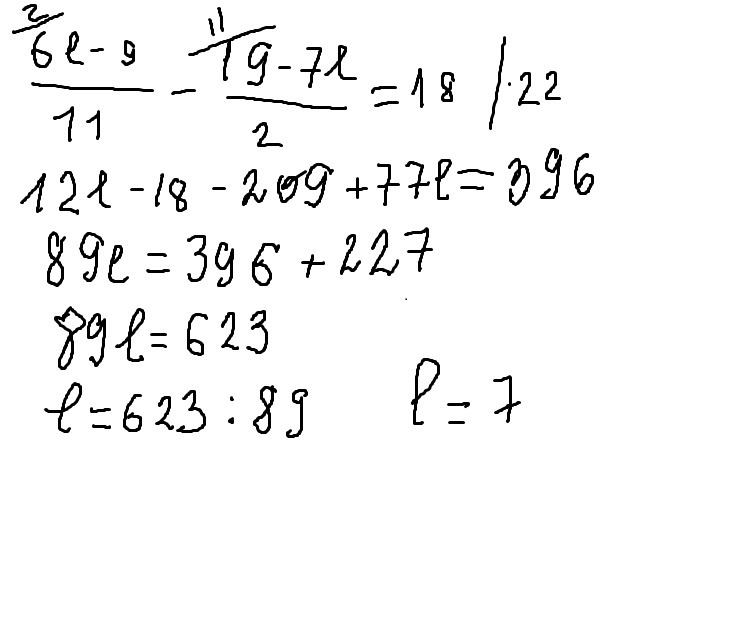 2 11
6l - 9 19 - 7l
— - — = 18 / · 22
11 2
12l - 18 - 209 + 77l = 396
89l = 396 + 227
89l = 623
l = 623 : 89 l = 7